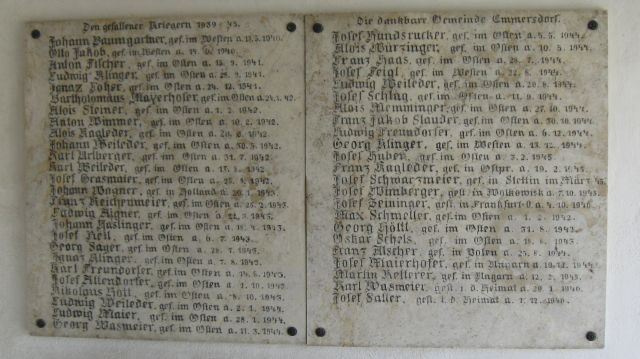 Den gefallenen Kriegern 1939-45.
Johann Baumgartner, gef. im Westen a. 13.5.1940.
Otto Jakob, gef. im Westen a. 14. 6. 1940.
Anton Fischer, gef. im Osten a. 15. 9. 1941.
Ludwig Klinger, gef. im Osten a. 28. 9. 1941.
Ignaz Loher, gef. im Osten a. 24. 12. 1941.
Bartholomäus Mayerhofer, gef. im Osten a. 24.1.42.
Alois Steiner, gef. im Osten a. 1. 2. 1942.
Anton Wimmer, gef. im Osten a. 10. 2. 1942.
Alois Kagleder, gef. im Osten a. 20. 2. 1942.
Johann Weileder, gef. im Osten a. 30. 3. 1942.
Karl Arlberger, gef. im Osten a. 31. 7. 1942.
Karl Weileder, gef. im Osten a. 13. 1942.
Josef Grasmaier, gef. im Osten a. 1942.
Johann Wagner, gef. in Holland a. 1943.
Franz Reichenmeier, gef. im Osten a. 26. 2. 1943.
Ludwig Aigner, gef. im Osten a. 22. 3. 1943.
Johann Haslinger, gef. im Osten a. 18. 4. 1943.
Josef gef. im Osten a. 6. 7. 1943.
Georg Sager, gef. im Osten a. 28. 7. 1943.
Ignaz Klinger, gef. im Osten a. 7. 8. 1943.
Karl Freundorfer, gef. im Osten a. 14. 8. 1943.
Josef Altendorfer, gef. im Osten a. 1. 10. 1943.
Nikolaus Höll, gef. im Osten a. 8. 10. 1943.
Ludwig Weileder, gef. im Osten a. 2. 1. 1944.
Ludwig Maier, gef. im Osten a. 28. 1. 1944.
Georg Wasmeier, gef. im Osten a. 11. 3. 1944.
Die dankbare Gemeinde Emmersdorf.
Josef Hundsrucker, gef. im Osten a. 5. 5. 1944.
Alois Wurzinger, gef. im Osten a. 10. 5. 1944.
Franz Haas, gef. im Osten a. 28. 7. 1944.
Josef Feigl, gef. im Westen a. 22. 8. 1944.
Ludwig Weileder, gef. im Osten a. 20. 8. 1944.
Josef Schlag, gef. im Osten a. 11. 9. 1944.
Alois Kleminger, gef. im Osten a. 27. 10. 1944.
Franz Jakob Stauder, gef. im Osten a. 30. 10. 1944.
Ludwig Freundorfer, gef. im Osten a. 6. 12. 1944.
Georg Klinger, gef. im Westen a. 13. 12. 1944.
Josef Huber, gef. im Osten a. 3. 2. 1945.
Franz Kagleder, gef. in Ostpr. a. 19. 2. 1945.
Josef Schwarzmeier, gef. in Stettin im März 45.
Josef Wimberger, gest. in Wolkowisk a. 7. 10. 1943.
Josef Zeminger, gest. in Frankfurt-O a. 4. 10. 1946.
Max Schmeller, gef. im Osten a. 1. 2. 1942.
Georg Höll, gef. im Osten a. 31. 8. 1943.
Oskar Schels, gef. im Osten a. 18. 8. 1943.
Franz Alscher, gef. in Polen a. 25. 8. 1944.
Josef Maierhofer, gef. in Ungarn a. 19. 12. 1944.
Martin Ketterer, gef. in Ungarn a. 12. 2. 1945.
Karl Wasmeier, gest. i. d. Heimat a. 29. 1. 1946.
Josef Faller, gest. i. d. Heimat a. 1. 12. 1946.